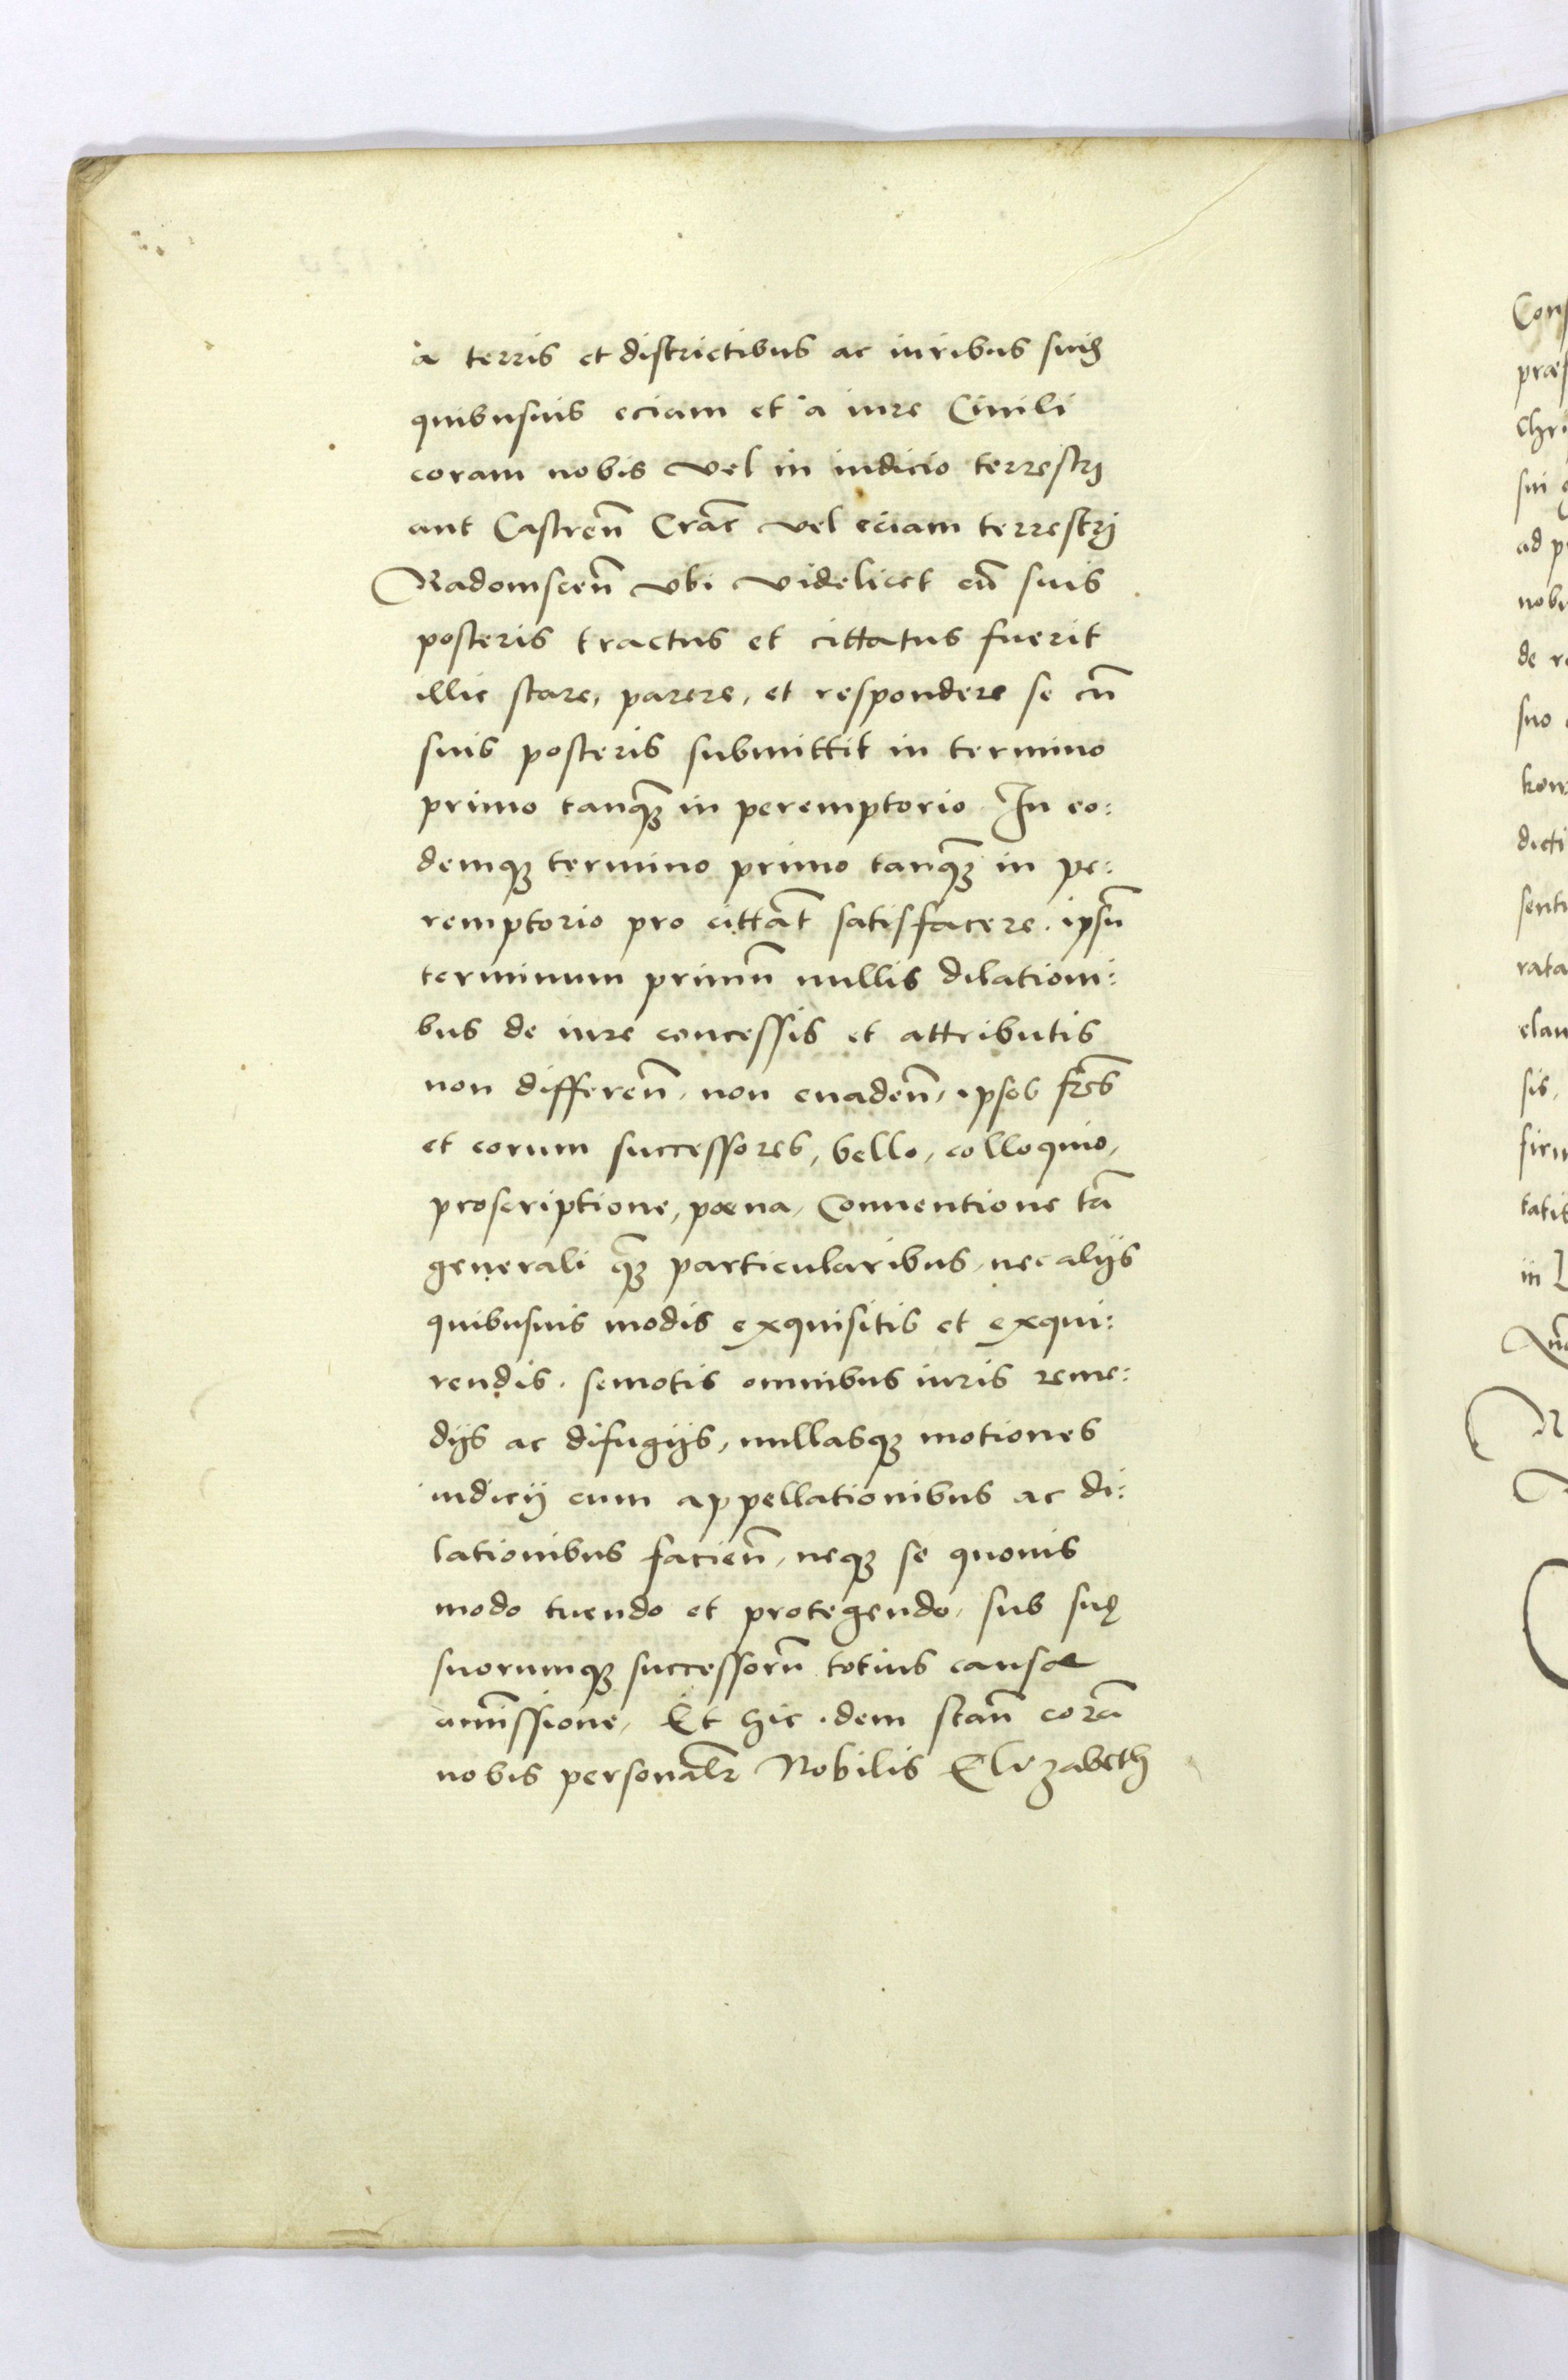 a terris et districtibus ac iuribus suis
quibusuis eciam et a iure Ciuili
coram nobis vel in iudicio terrestrj
aut Castreñ Crac̃ vel eciam terrestrj
Radomsceñ vbi videlicet cũ suis
posteris tractus et cittatus fuerit
illic stare, parere, et respondere se cũ
suis posteris submittit in termino
primo tanqꝫ in peremptorio In eo:
demqꝫ termino primo tanqꝫ in pe:
remptorio pro cittat̃ satisfacere. ipsũ
terminum primũ nullis dilationi:
bus de iure concessis et attributis
non differeñ, non euadeñ, ipsos fr̃es
et eorum successores, bello, colloquio,
proscriptione, poena, Conuentione tã
generali qꝫ particularibus, nec alijs
quibusuis modis exquisitis et exqui:
rendis. semotis omnibus iuris reme:
dijs ac difugijs, nullasqꝫ motiones
iudicij cum appellationibus ac di:
lationibus facieñ, neqꝫ se quouis
modo tuendo et protegendo, sub suę
suorumqꝫ successorũ totius causae
amĩssione, Et hic idem stañ corã
nobis personalr̃ Nobilis Elizabeth
Cons
praes
Chri
sui
ad p
nobi
de r
suo
kow
dicti
senti
rata
clau
sis,
firm
tatis
in